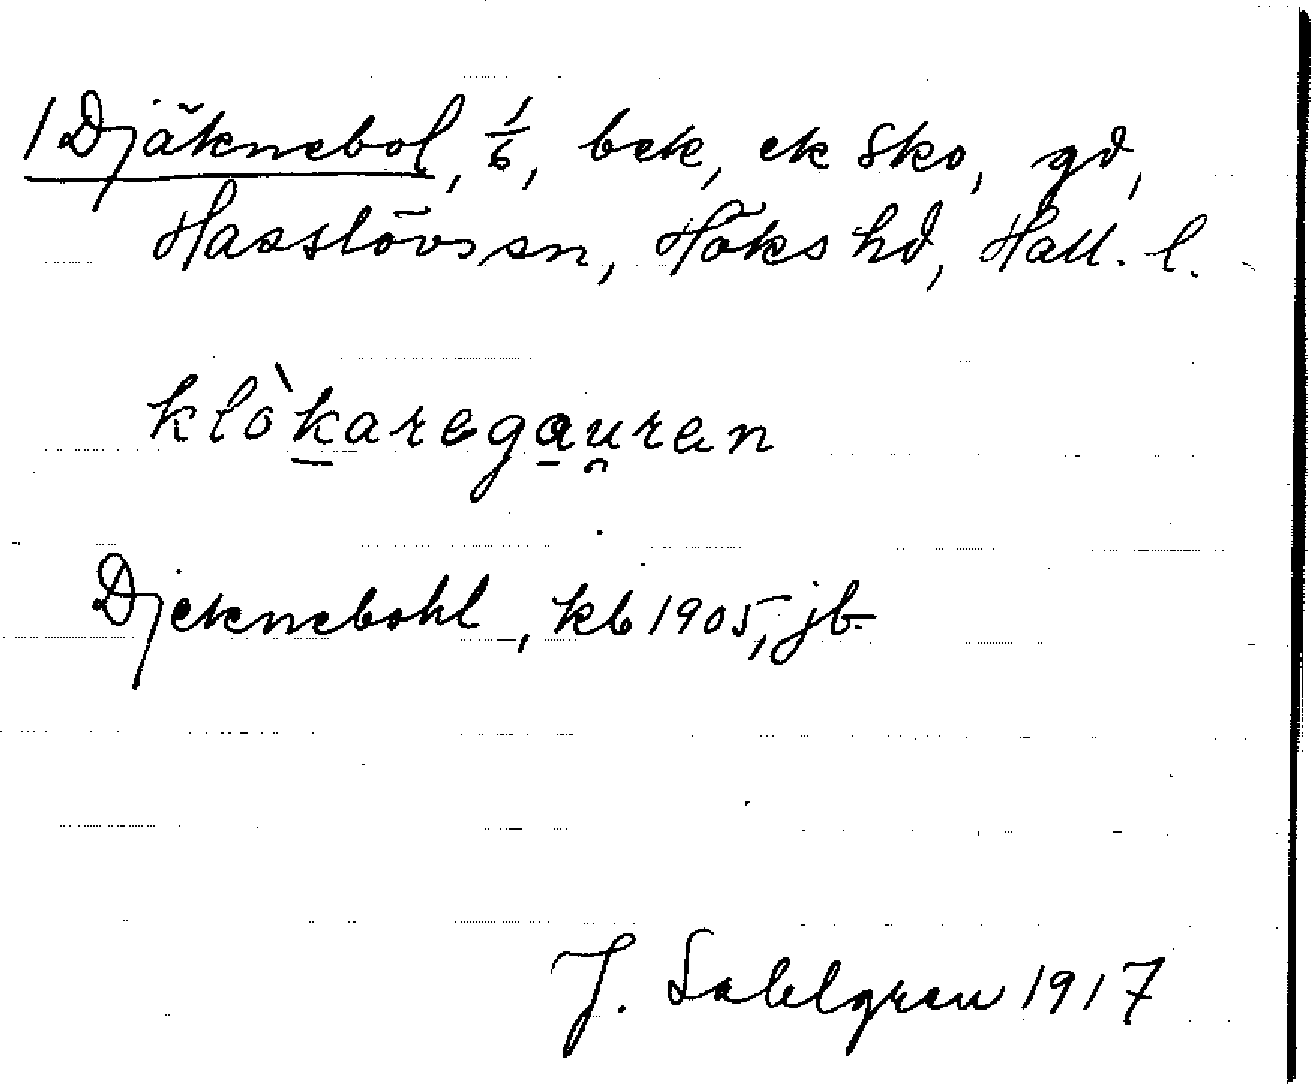 1 Djäknebol, 1/6, bek, ek sko, gd,
Hasslövs sn, Höks hd, Hall. l.
klo`karegau̯ren
Djeknebohl, kb 1905, jb
J. Sahlgren 1917